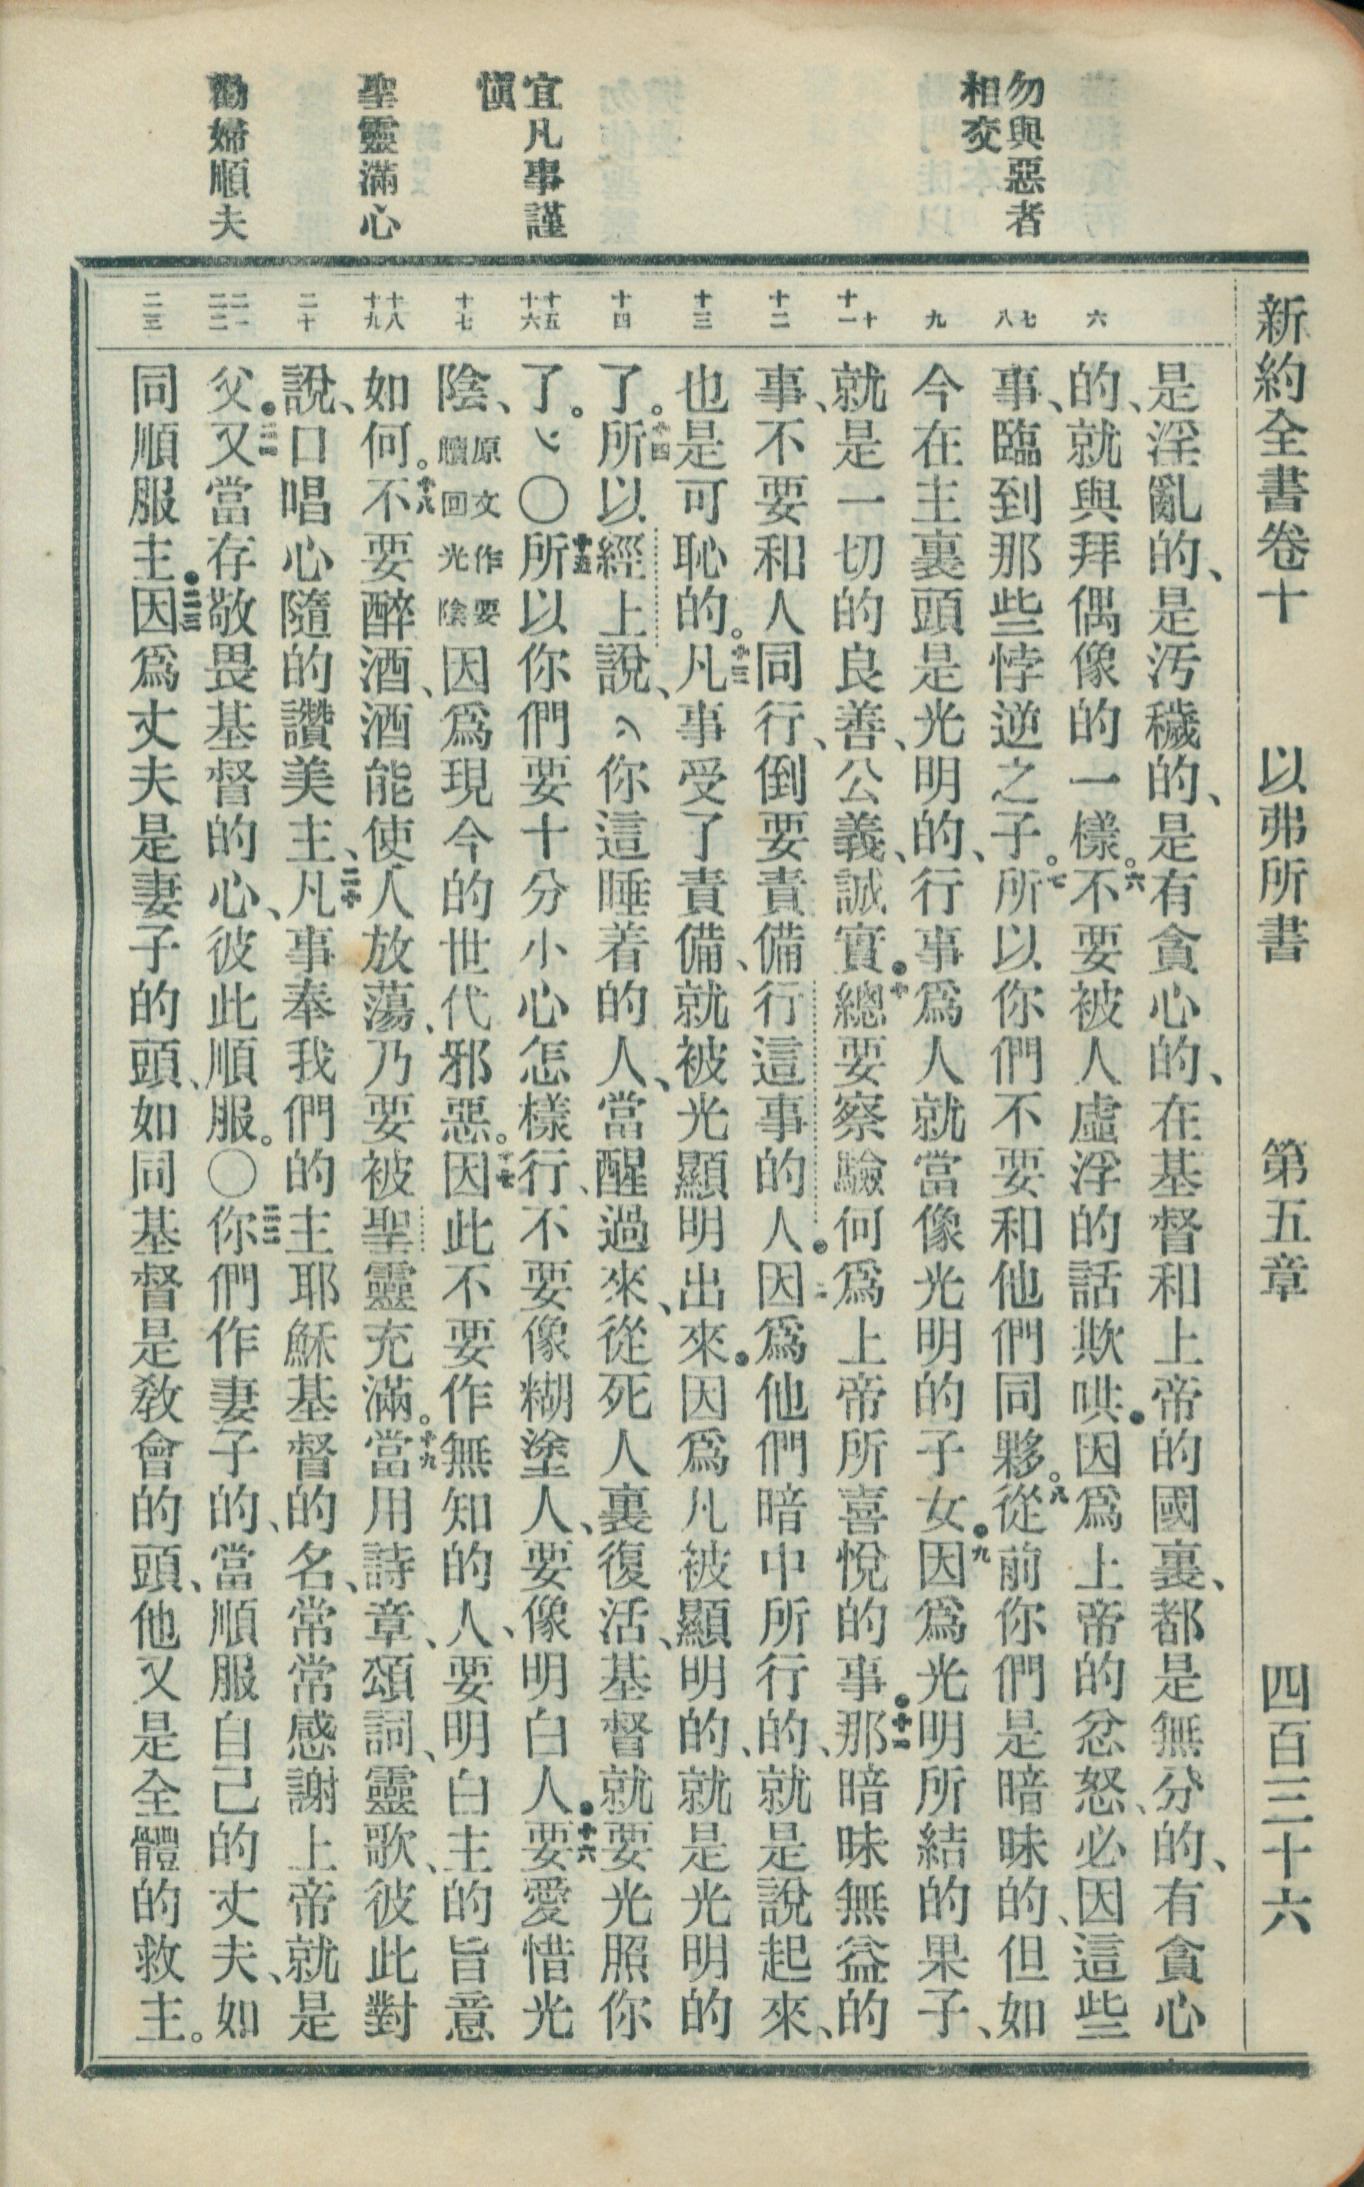 新約全書卷十 以弗所書 第五章 四百三十六
勿與惡者
相交
宜凡事謹
愼
聖靈滿心
勸婦順夫
六
七
八
九
十
十一
十二
十三
十四
十五
十六
十七
十八
十九
二十
二一
二二
二三
是淫亂的、是汚穢的、是有貪心的、在基督和上帝的國裏、都是無分的、有貪心
的、就與拜偶像的一樣。六不要被人虛浮的話欺哄．因爲上帝的忿怒、必因這些
事、臨到那些悖逆之子。七所以你們不要和他們同夥。八從前你們是暗昧的、但如
今在主裏頭是光明的、行事爲人就當像光明的子女．九因爲光明所結的果子、
就是一切的良善、公義、誠實．十總要察驗何爲上帝所喜悅的事．十一那暗昧無益的
事、不要和人同行、倒要責備行這事的人．十二因爲他們暗中所行的、就是說起來、
也是可恥的。十三凡事受了責備、就被光顯明出來．因爲凡被顯明的、就是光明的
了。十四所以經上說、你這睡着的人、當醒過來、從死人裏復活、基督就要光照你
了。〇十五所以你們要十分小心怎樣行、不要像糊塗人、要像明白人．十六要愛惜光
陰、原文作要贖回光陰因爲現今的世代邪惡。十七因此不要作無知的人、要明白主的旨意
如何。十八不要醉酒、酒能使人放蕩、乃要被聖靈充滿。十九當用詩章、頌詞、靈歌、彼此對
說、口唱心隨的讚美主、二十凡事奉我們的主耶穌基督的名、常常感謝上帝就是
父．二一又當存敬畏基督的心、彼此順服。〇二二你們作妻子的、當順服自己的丈夫、如
同順服主．二三因爲丈夫是妻子的頭、如同基督是敎會的頭、他又是全體的救主。